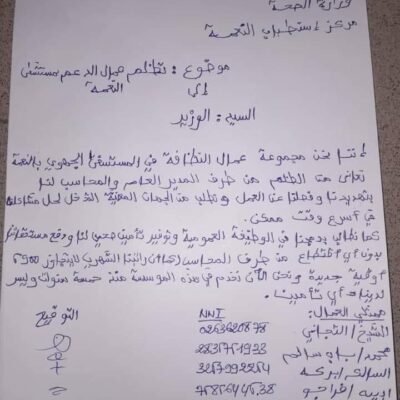 وزارة الصحة
مركز استطباب النعمة
موضوع : تظلم عمال الدعم بمستشفى
النعمة
إلى
السيد : الوزير
إننا نحن مجموعة عمال النظافة في المستشفى الجهوي بالنعمة
نعاني من الظلم من طرف المدير العام والمحاسب لنا
بتهديدنا وفصلنا عن العمل ونطلب من الجهات المعنية التدخل لحل مشاكلنا
في أسرع وقت ممكن.
كما نطالب بدمجنا في الوظيفة العمومية وتوفير تأمين صحي لنا ودفع مستحقاتنا
بدون أي اقتطاع من طرف المحاسب لأن راتبنا الشهري لا يتجاوز
أوقية جديدة ونحن الآن نخدم في هذه المؤسسة منذ خمسة سنوات وليس
لدينا أي تأمين.
ممثلي العمال: NNI التوقيع
الشيخ / التجاني
محمد / باب سالم
السالك / بركة